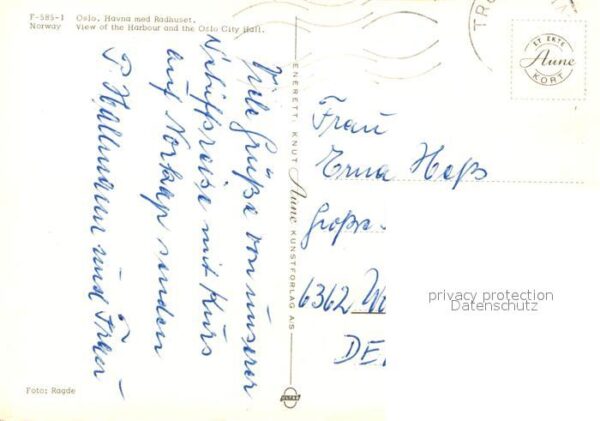 F-585-1 Oslo. Havna med Rådhuset.
Norway View of the Harbour and the Oslo City Hall.
Viele Grüße von unserer
Schiffsreise mit Kurs
auf Nordkap senden
P. Hallmann und Frau
Foto: Ragde
ENERETT: KNUT Aune KUNSTFORLAG A/S
ET EKTE
Aune
KORT
Frau
Erna Heß
Große
6362
DE
privacy protection
Datenschutz